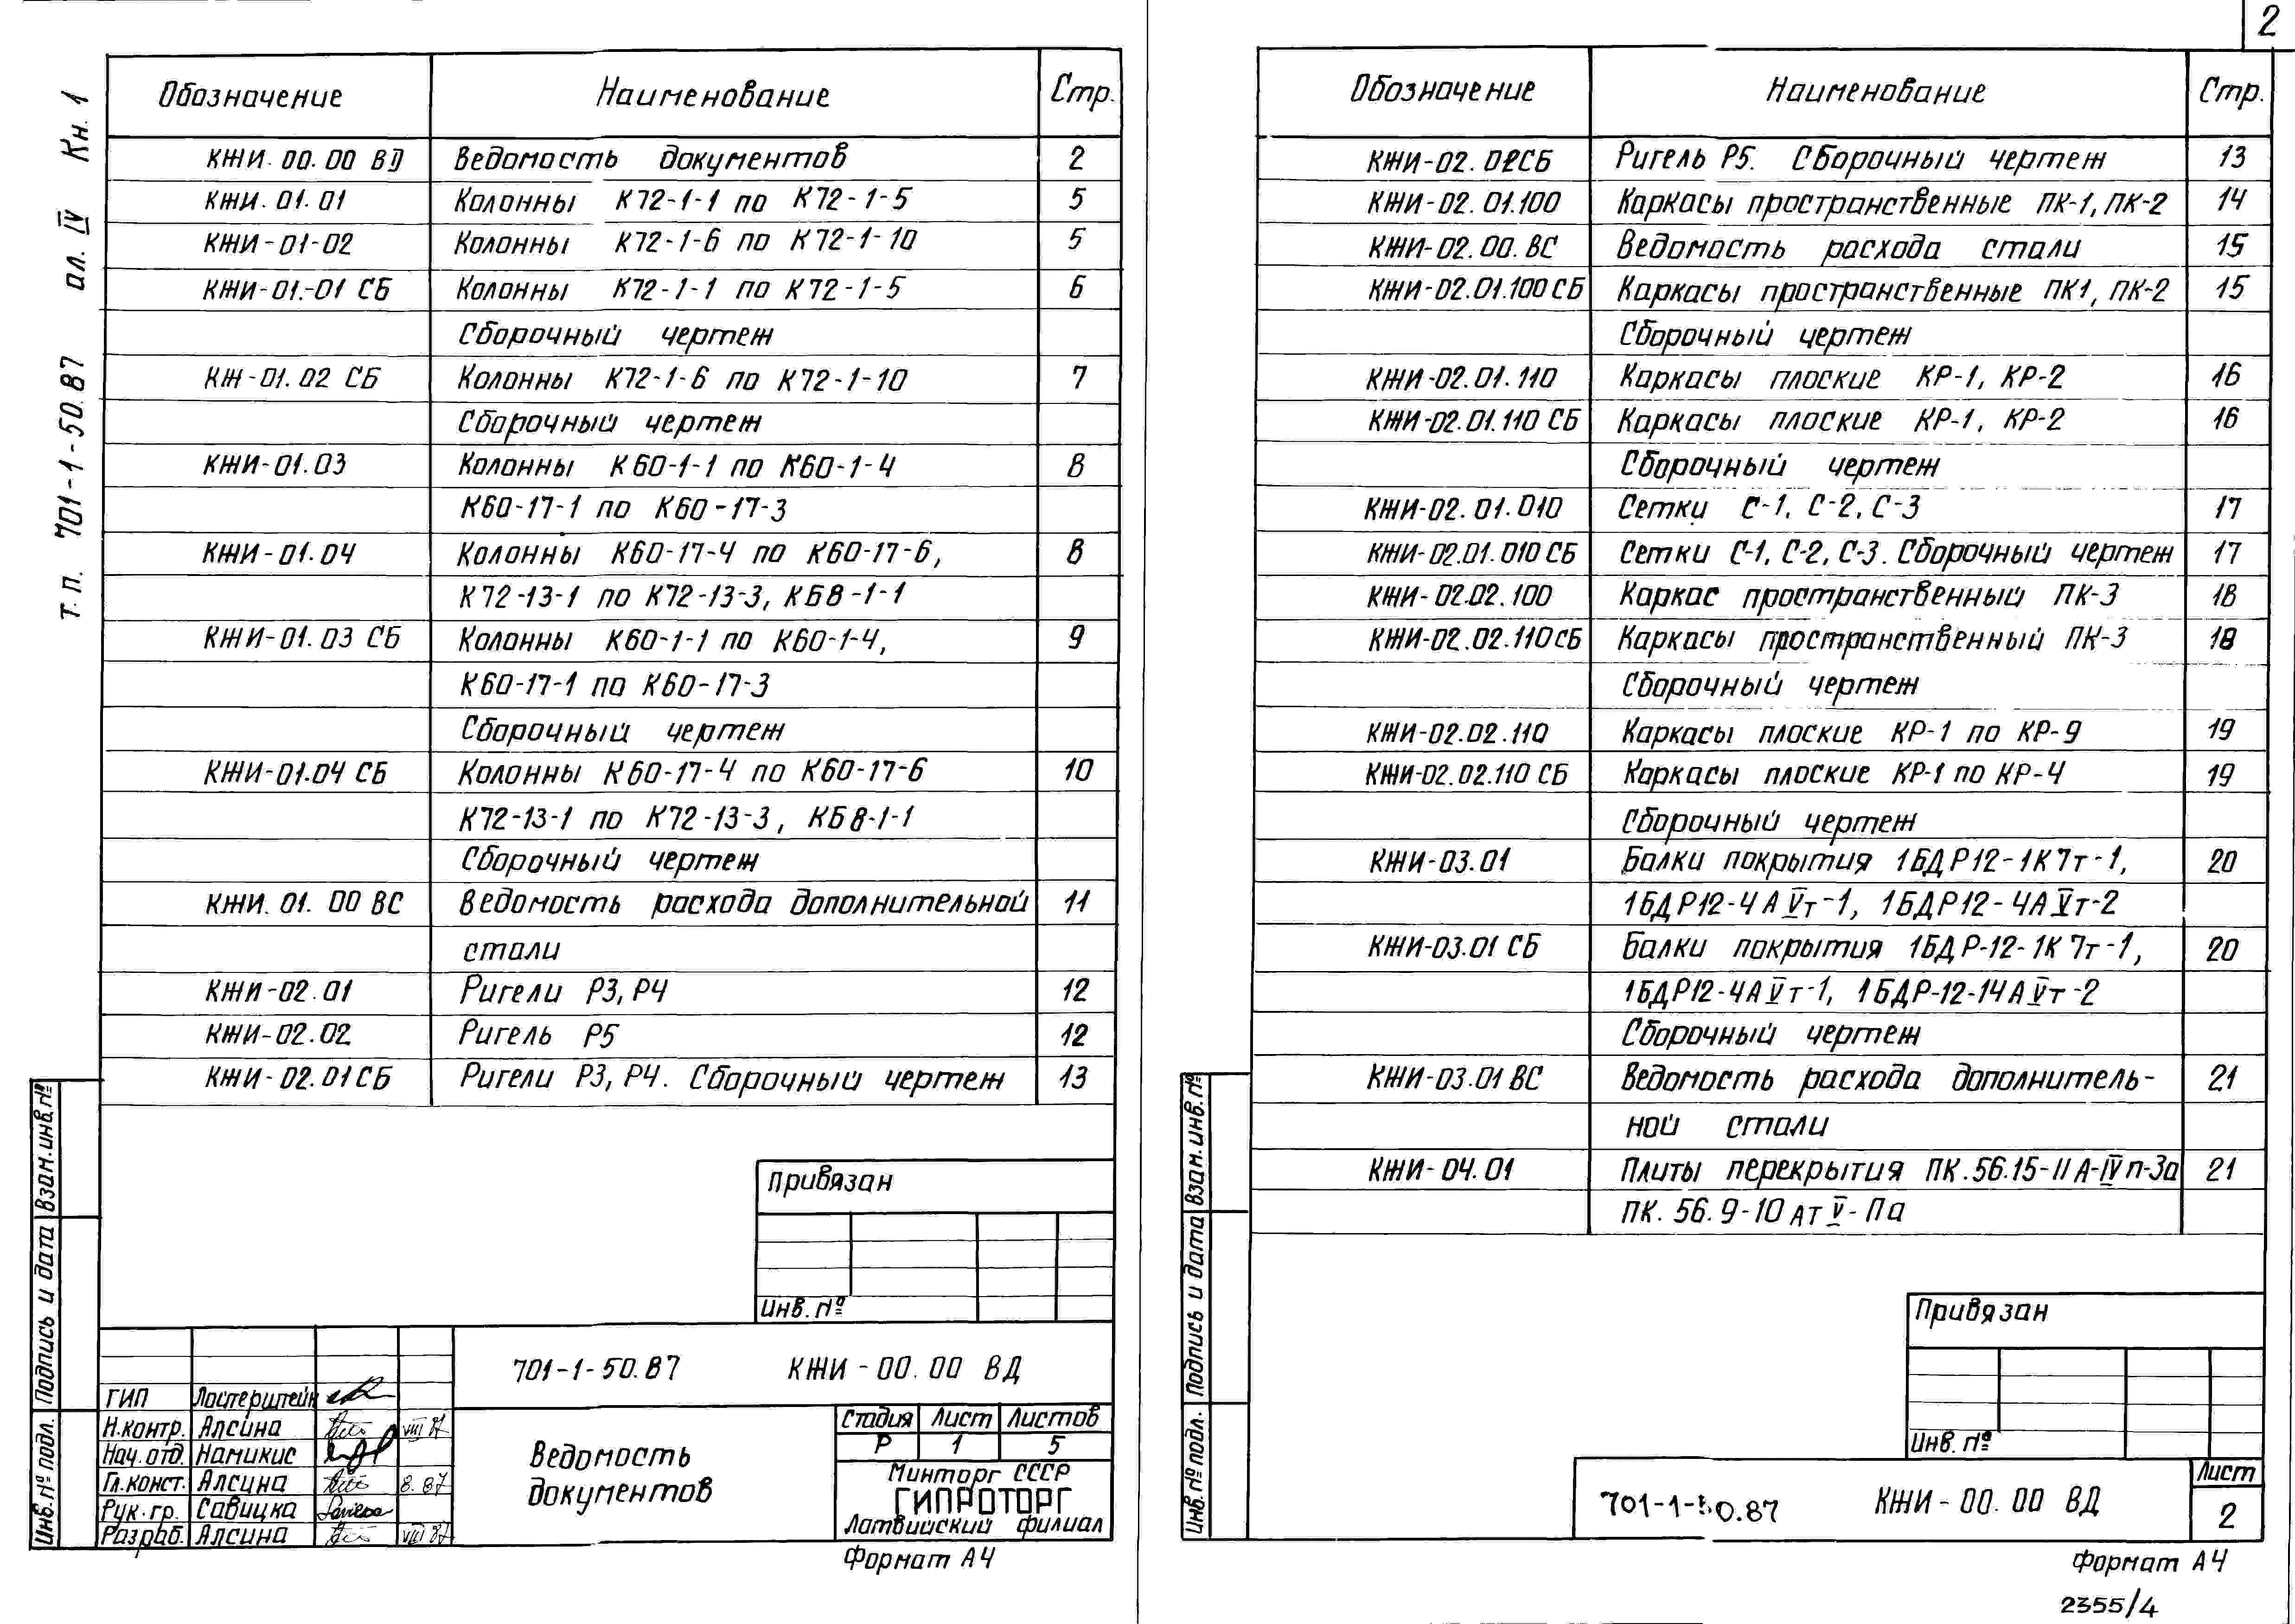 2
т.п. 701-1-50.87 ал. IV Кн. 1
Обозначение Наименование Стр.
КЖИ. 00. 00 ВД Ведомость документов 2
КЖИ. 01. 01 Колонны К72-1-1 по К72-1-5 5
КЖИ-01-02 Колонны К72-1-6 по К72-1-10 5
КЖИ-01.-01 СБ Колонны К72-1-1 по К72-1-5 6
Сборочный чертеж
КЖ-01.02 СБ Колонны К72-1-6 по К72-1-10 7
Сборочный чертеж
КЖИ-01.03 Колонны К60-1-1 по К60-1-4 8
К60-17-1 по К60-17-3
КЖИ-01.04 Колонны К60-17-4 по К60-17-6, 8
К72-13-1 по К72-13-3, КБ8-1-1
КЖИ-01.03 СБ Колонны К60-1-1 по К60-1-4, 9
К60-17-1 по К60-17-3
Сборочный чертеж
КЖИ-01.04 СБ Колонны К60-17-4 по К60-17-6 10
К72-13-1 по К72-13-3, КБ8-1-1
Сборочный чертеж
КЖИ. 01. 00 ВС Ведомость расхода дополнительной 11
стали
КЖИ-02.01 Ригели Р3, Р4 12
КЖИ-02.02 Ригель Р5 12
КЖИ-02.01СБ Ригели Р3, Р4. Сборочный чертеж 13
Привязан
Инв. №
701-1-50.87 КЖИ-00.00 ВД
ГИП Ластерштейн
Н.контр. Алсина VIII 87
Нач. отд. Намикис
Гл.конст. Алсина 8.87
Рук. гр. Савицка
Разраб. Алсина VIII 87
Ведомость
документов
Стадия Лист Листов
Р 1 5
Минторг СССР
ГИПРОТОРГ
Латвийский филиал
Формат А4
Взам.инв.№
Подпись и дата
Инв.№ подл.
Обозначение Наименование Стр.
КЖИ-02.02СБ Ригель Р5. Сборочный чертеж 13
КЖИ-02.01.100 Каркасы пространственные ПК-1, ПК-2 14
КЖИ-02.00.ВС Ведомость расхода стали 15
КЖИ-02.01.100СБ Каркасы пространственные ПК1, ПК-2 15
Сборочный чертеж
КЖИ-02.01.110 Каркасы плоские КР-1, КР-2 16
КЖИ-02.01.110 СБ Каркасы плоские КР-1, КР-2 16
Сборочный чертеж
КЖИ-02.01.010 Сетки С-1, С-2, С-3 17
КЖИ-02.01.010 СБ Сетки С-1, С-2, С-3. Сборочный чертеж 17
КЖИ-02.02.100 Каркас пространственный ПК-3 18
КЖИ-02.02.110СБ Каркасы пространственный ПК-3 18
Сборочный чертеж
КЖИ-02.02.110 Каркасы плоские КР-1 по КР-9 19
КЖИ-02.02.110 СБ Каркасы плоские КР-1 по КР-4 19
Сборочный чертеж
КЖИ-03.01 Балки покрытия 1БДР12-1К7т-1, 20
1БДР12-4АVт-1, 1БДР12-4АVт-2
КЖИ-03.01 СБ Балки покрытия 1БДР-12-1К7т-1, 20
1БДР12-4АVт-1, 1БДР-12-14АVт-2
Сборочный чертеж
КЖИ-03.01 ВС Ведомость расхода дополнитель- 21
ной стали
КЖИ-04.01 Плиты перекрытия ПК.56.15-11А-IVп-3а 21
ПК.56.9-10 Ат V-Па
Привязан
Инв. №
701-1-50.87 КЖИ-00.00 ВД
Лист
2
Формат А4
2355/4
Взам.инв.№
Подпись и дата
Инв.№ подл.